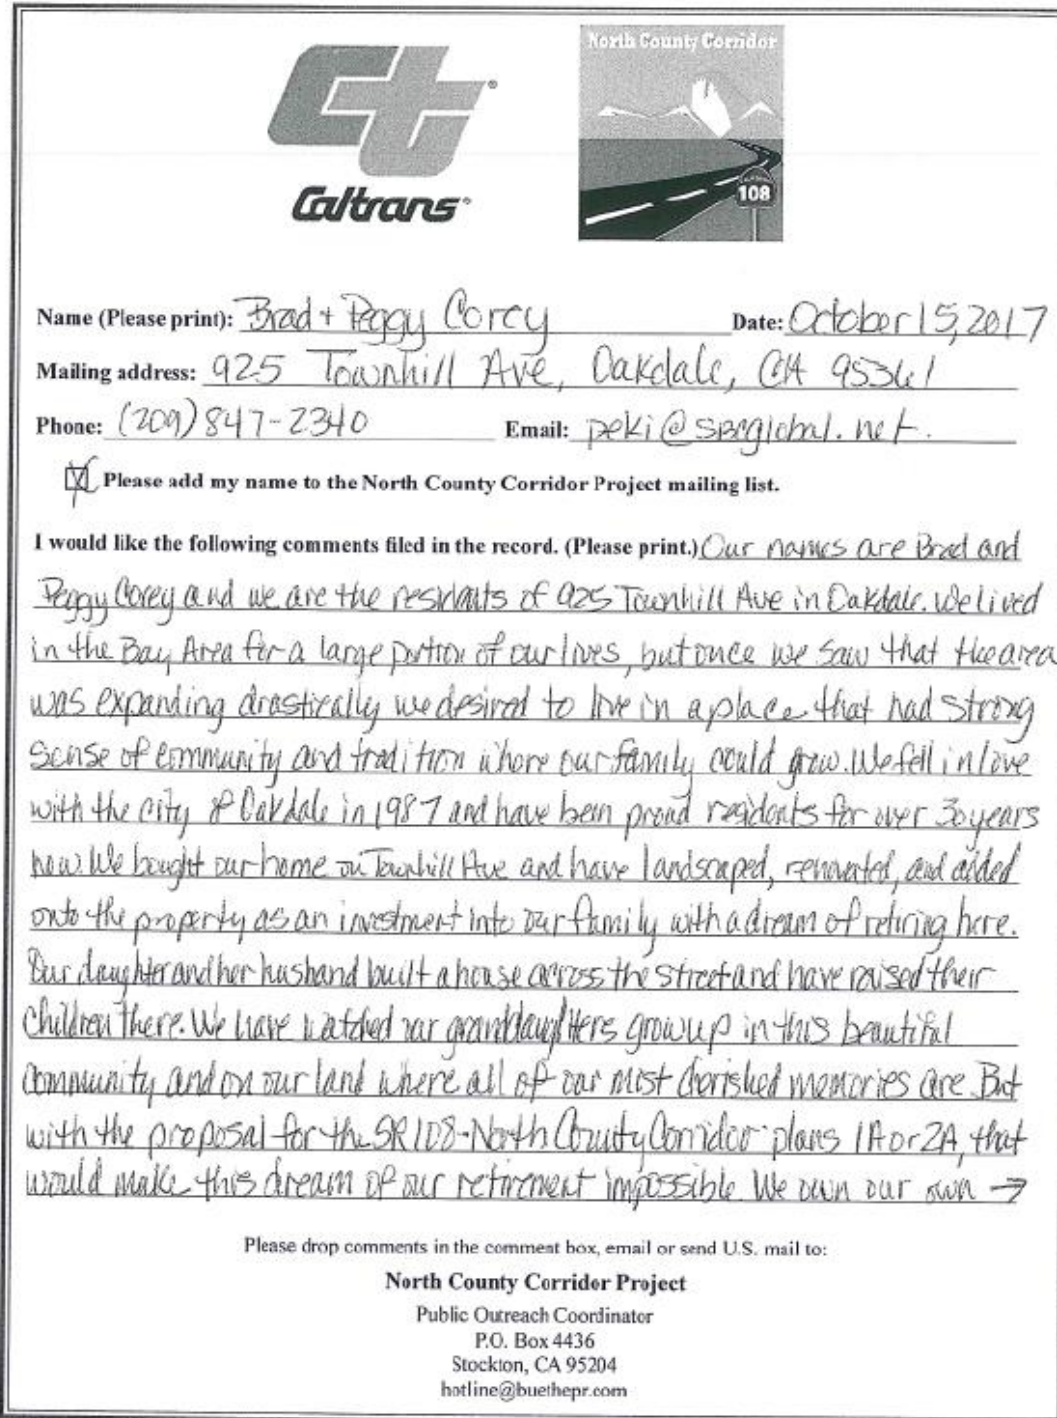 Ct®
Caltrans®
North County Corridor
CALIFORNIA
108
Name (Please print): Brad + Peggy Corey Date: October 15, 2017
Mailing address: 925 Townhill Ave, Oakdale, CA 95361
Phone: (209) 847-2340 Email: peki@sbcglobal.net.
Please add my name to the North County Corridor Project mailing list.
I would like the following comments filed in the record. (Please print.) Our names are Brad and
Peggy Corey and we are the residents of 925 Townhill Ave in Oakdale. We lived
in the Bay Area for a large portion of our lives, but once we saw that the area
was expanding drastically we desired to live in a place that had strong
sense of community and tradition where our family could grow. We fell in love
with the city of Oakdale in 1987 and have been proud residents for over 30 years
now. We bought our home on Townhill Ave and have landscaped, renovated, and added
onto the property as an investment into our family with a dream of retiring here.
Our daughter and her husband built a house across the street and have raised their
children there. We have watched our granddaughters grow up in this beautiful
community and on our land where all of our most cherished memories are. But
with the proposal for the SR108-North County Corridor plans 1A or 2A, that
would make this dream of our retirement impossible. We own our own →
Please drop comments in the comment box, email or send U.S. mail to:
North County Corridor Project
Public Outreach Coordinator
P.O. Box 4436
Stockton, CA 95204
hotline@buethepr.com